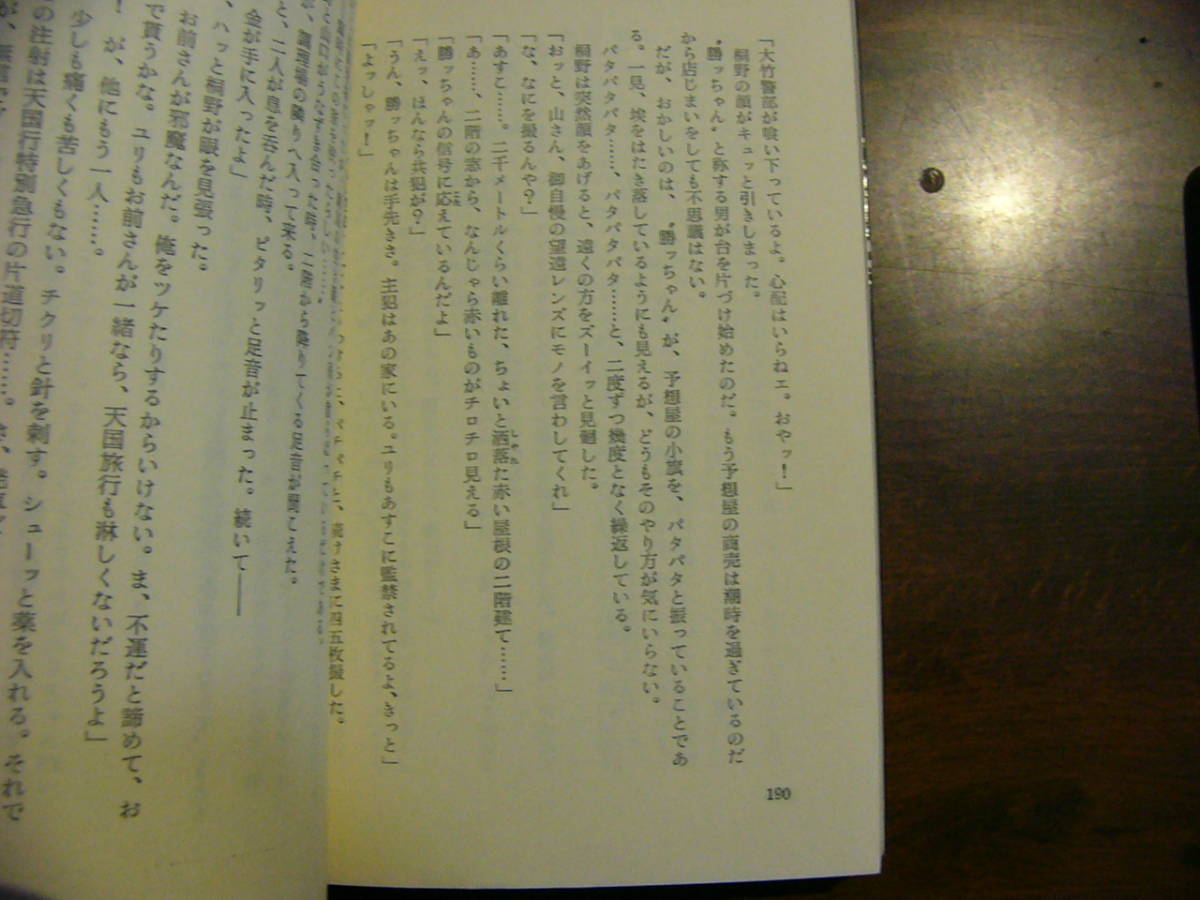 「大竹警部が喰い下っているよ。心配はいらねェ。おやッ！」
桐野の顔がキュッと引きしまった。
〝勝っちゃん〟と称する男が台を片づけ始めたのだ。もう予想屋の商売は潮時を過ぎているのだ
から店じまいをしても不思議はない。
だが、おかしいのは、〝勝っちゃん〟が、予想屋の小旗を、パタパタと振っていることであ
る。一見、埃をはたき落しているようにも見えるが、どうもそのやり方が気にいらない。
パタパタパタ……、パタパタパタ……と、二度ずつ幾度となく繰返している。
桐野は突然顔をあげると、遠くの方をズーイッと見廻した。
「おっと、山さん、御自慢の望遠レンズにモノを言わしてくれ」
「な、なにを撮るんや？」
「あすこ……。二千メートルくらい離れた、ちょいと洒落た赤い屋根の二階建て……」
「あ……、二階の窓から、なんじゃら赤いものがチロチロ見える」
「勝っちゃんの信号に応えているんだよ」
「えッ、ほんなら共犯が？」
「うん、勝っちゃんは手先きさ。主犯はあの家にいる。ユリもあすこに監禁されてるよ、きっと」
「よっしゃッ！」
パチパチと、続けさまに四五枚撮した。
190
調理場の隣りへ入った時、二階から降りてくる足音が聞こえた。
入って来る。
と、二人が息を呑んだ時、ピタリッと足音が止まった。続いて――
金が手に入ったよ」
ハッと桐野が眼を見張った。
お前さんが邪魔なんだ。俺をツケたりするからいけない。ま、不運だと諦めて、お
で貰うかな。ユリもお前さんが一緒なら、天国旅行も淋しくないだろうよ」
！　が、他にもう一人……。
少しも痛くも苦しくもない。チクリと針を刺す。シューッと薬を入れる。それで
の注射は天国行特別急行の片道切符……。